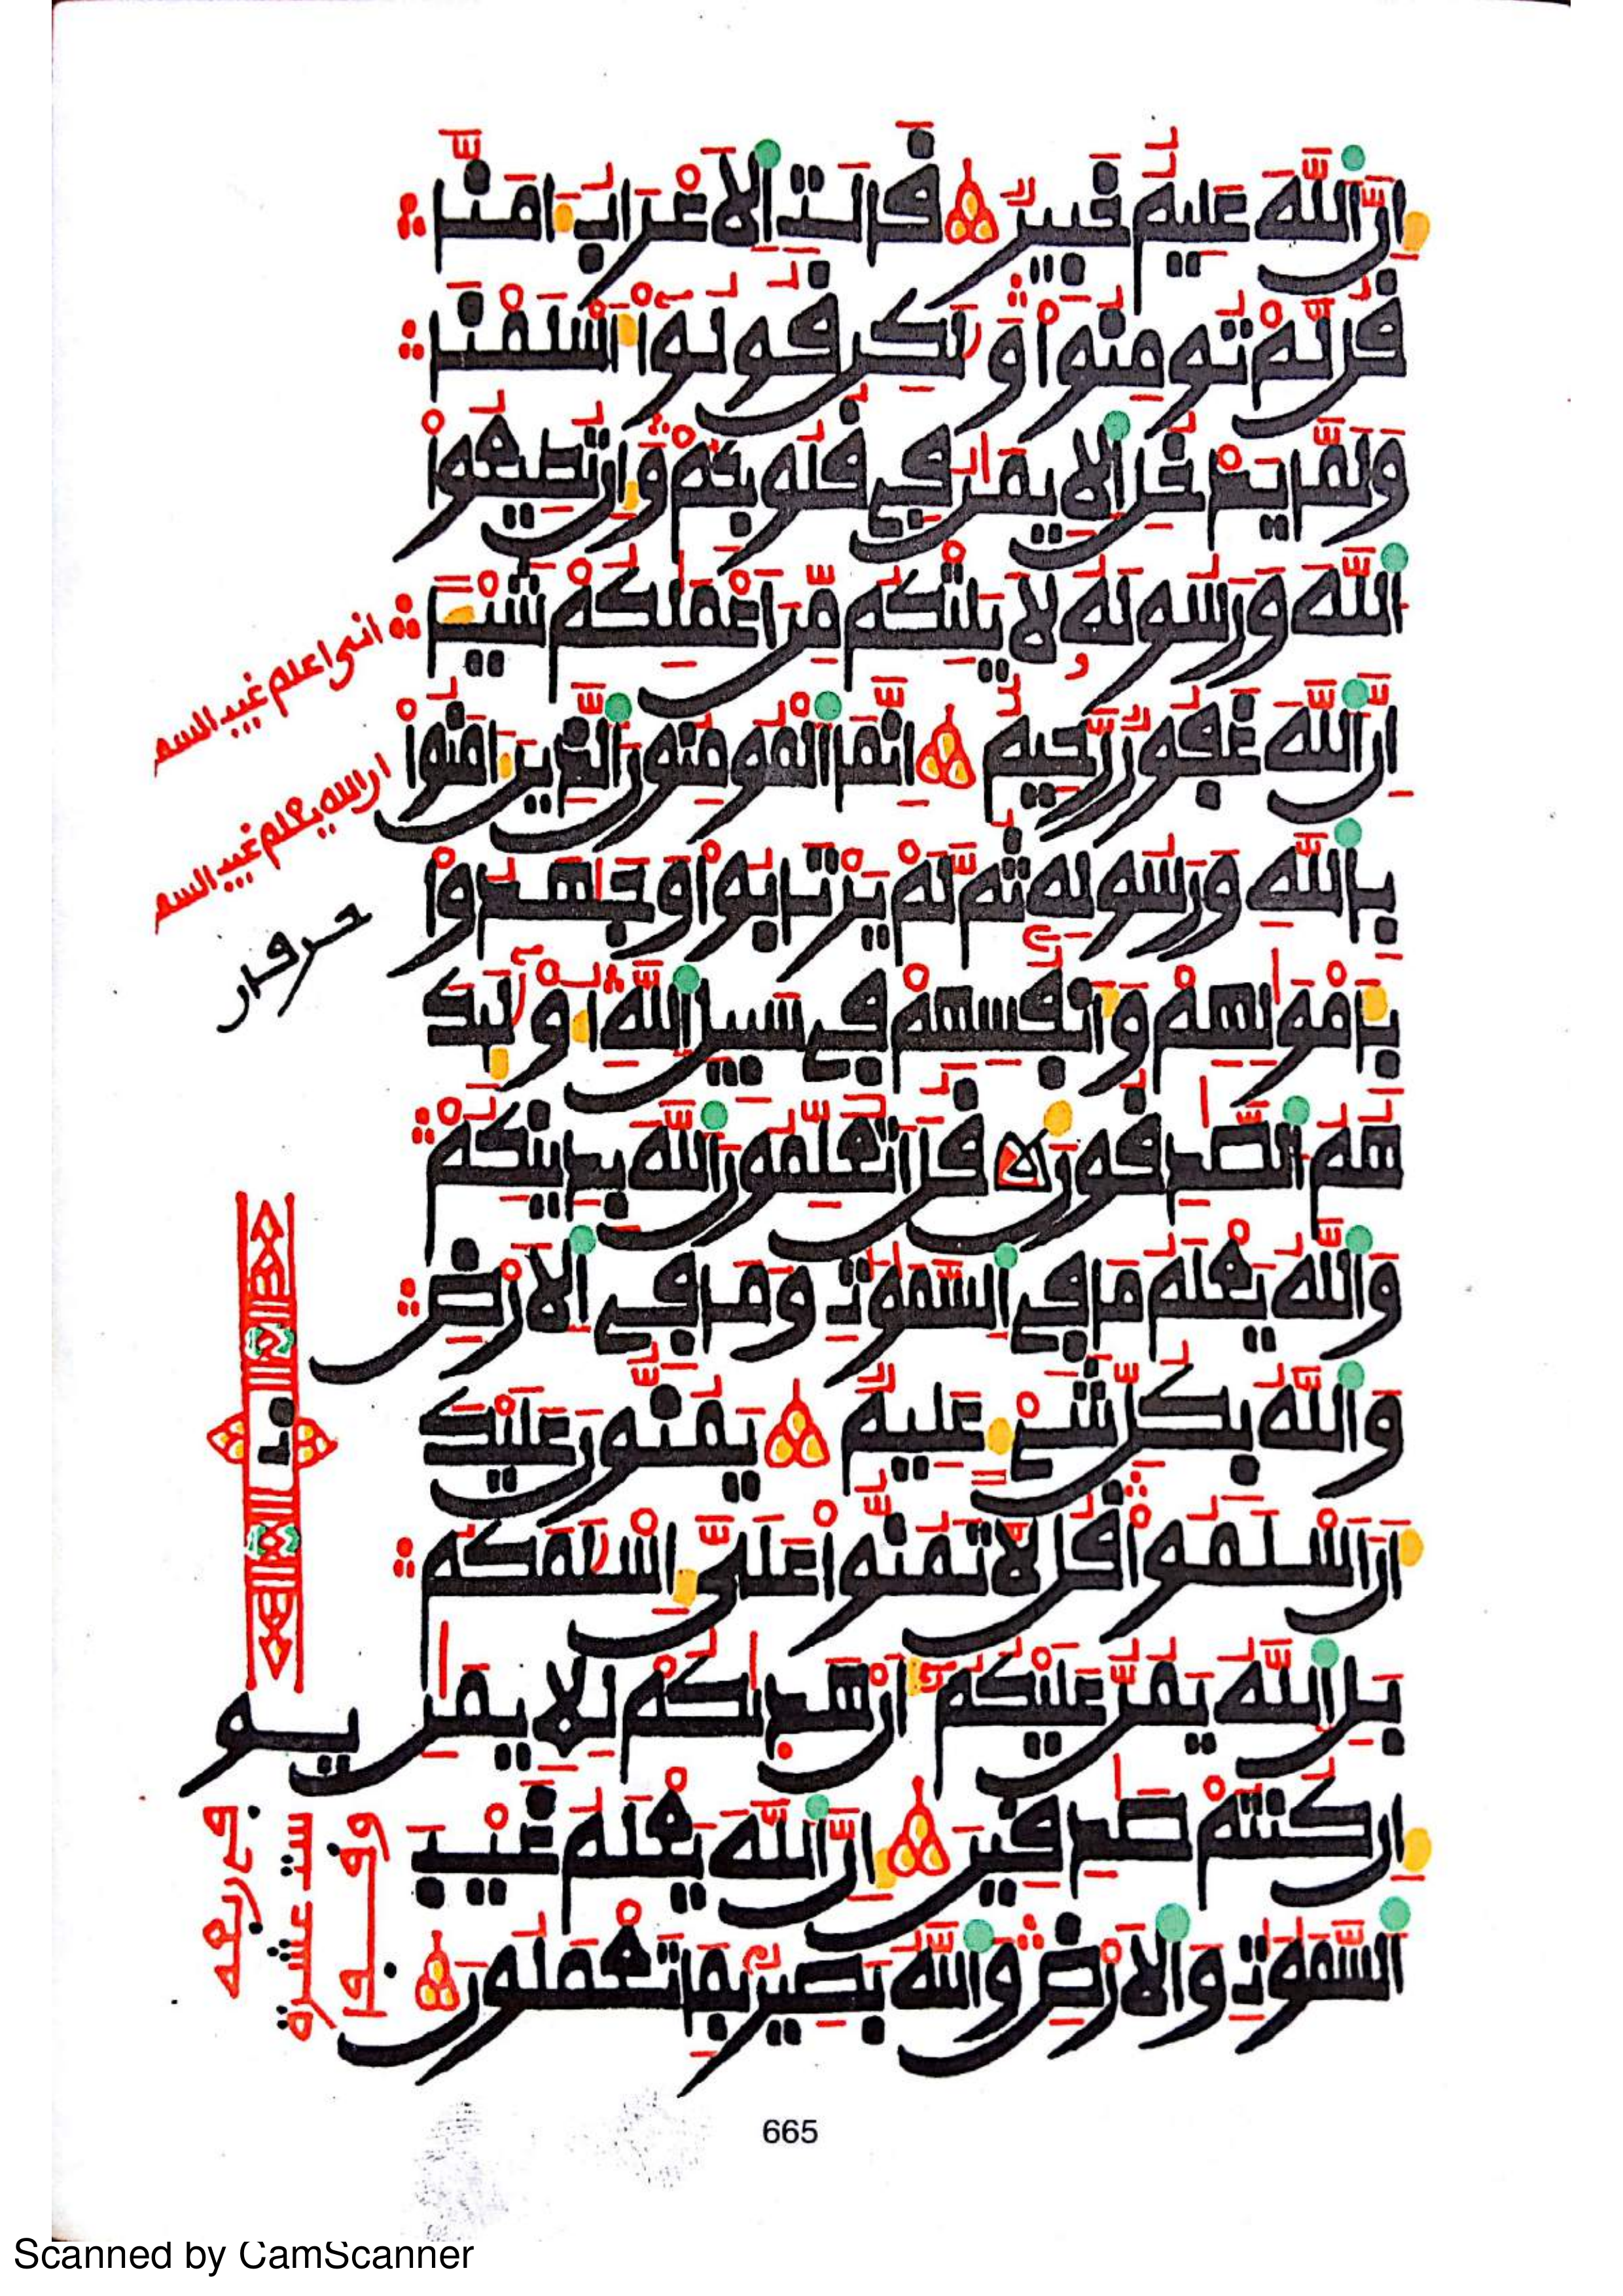 إِنَّ ٱللَّهَ عَلِيمٌ خَبِيرٌ قَالَتِ ٱلَاعْرَابُ ءَامَنَّا
قُل لَّمْ تُومِنُواْ وَلَٰكِن قُولُوٓاْ أَسْلَمْنَا
وَلَمَّا يَدْخُلِ ٱلِايمَٰنُ فِي قُلُوبِكُمْ وَإِن تُطِيعُواْ
ٱللَّهَ وَرَسُولَهُ لَا يَلِتْكُم مِّنَ اَعْمَٰلِكُمْ شَيْـًٔا
إِنَّ ٱللَّهَ غَفُورٌ رَّحِيمٌ إِنَّمَا ٱلْمُومِنُونَ ٱلَّذِينَ ءَامَنُواْ
بِٱللَّهِ وَرَسُولِهِ ثُمَّ لَمْ يَرْتَابُواْ وَجَٰهَدُواْ
بِأَمْوَٰلِهِمْ وَأَنفُسِهِمْ فِي سَبِيلِ ٱللَّهِ أُوْلَٰٓئِكَ
هُمُ ٱلصَّٰدِقُونَ قُلَ اَتُعَلِّمُونَ ٱللَّهَ بِدِينِكُمْ
وَٱللَّهُ يَعْلَمُ مَا فِي ٱلسَّمَٰوَٰتِ وَمَا فِي ٱلَارْضِ
وَٱللَّهُ بِكُلِّ شَيْءٍ عَلِيمٌ يَمُنُّونَ عَلَيْكَ
أَنَ اَسْلَمُواْ قُل لَّا تَمُنُّواْ عَلَيَّ إِسْلَٰمَكُم
بَلِ ٱللَّهُ يَمُنُّ عَلَيْكُمُۥٓ أَنْ هَدَىٰكُمْ لِلِايمَٰنِ
إِن كُنتُمْ صَٰدِقِينَ إِنَّ ٱللَّهَ يَعْلَمُ غَيْبَ
ٱلسَّمَٰوَٰتِ وَٱلَارْضِ وَٱللَّهُ بَصِيرٌ بِمَا تَعْمَلُونَ
انى اعلم غيب السم
ان الله يعلم غيب السم
665
Scanned by CamScanner